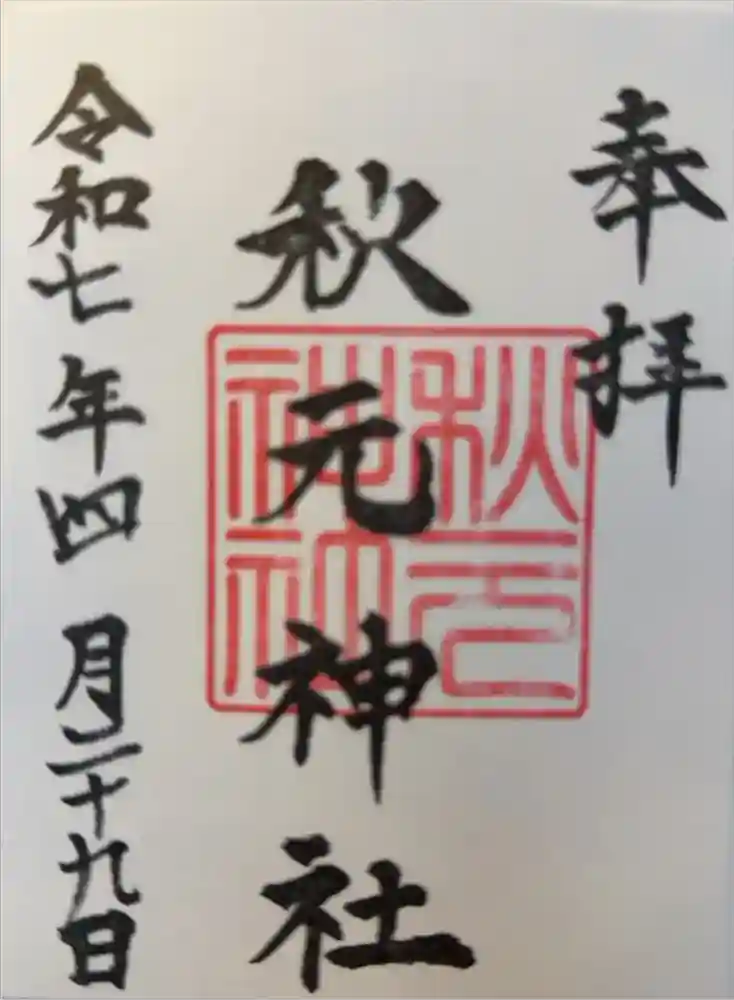 奉拝
秋元神社
令和七年四月二十九日
秋元
神社